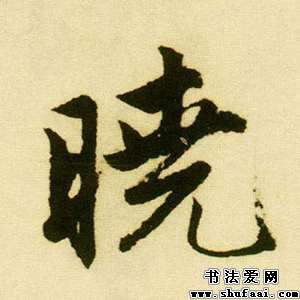 曉
书法爱网
www.shufaai.com